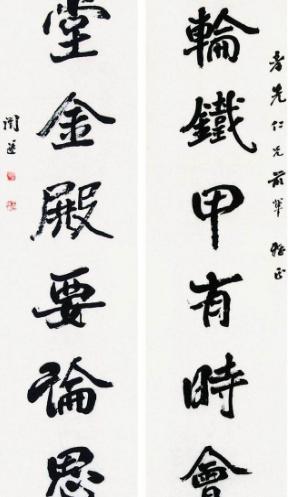 先仁兄前輩雅正
輪鐵甲有時會
堂金殿要論思
闓運